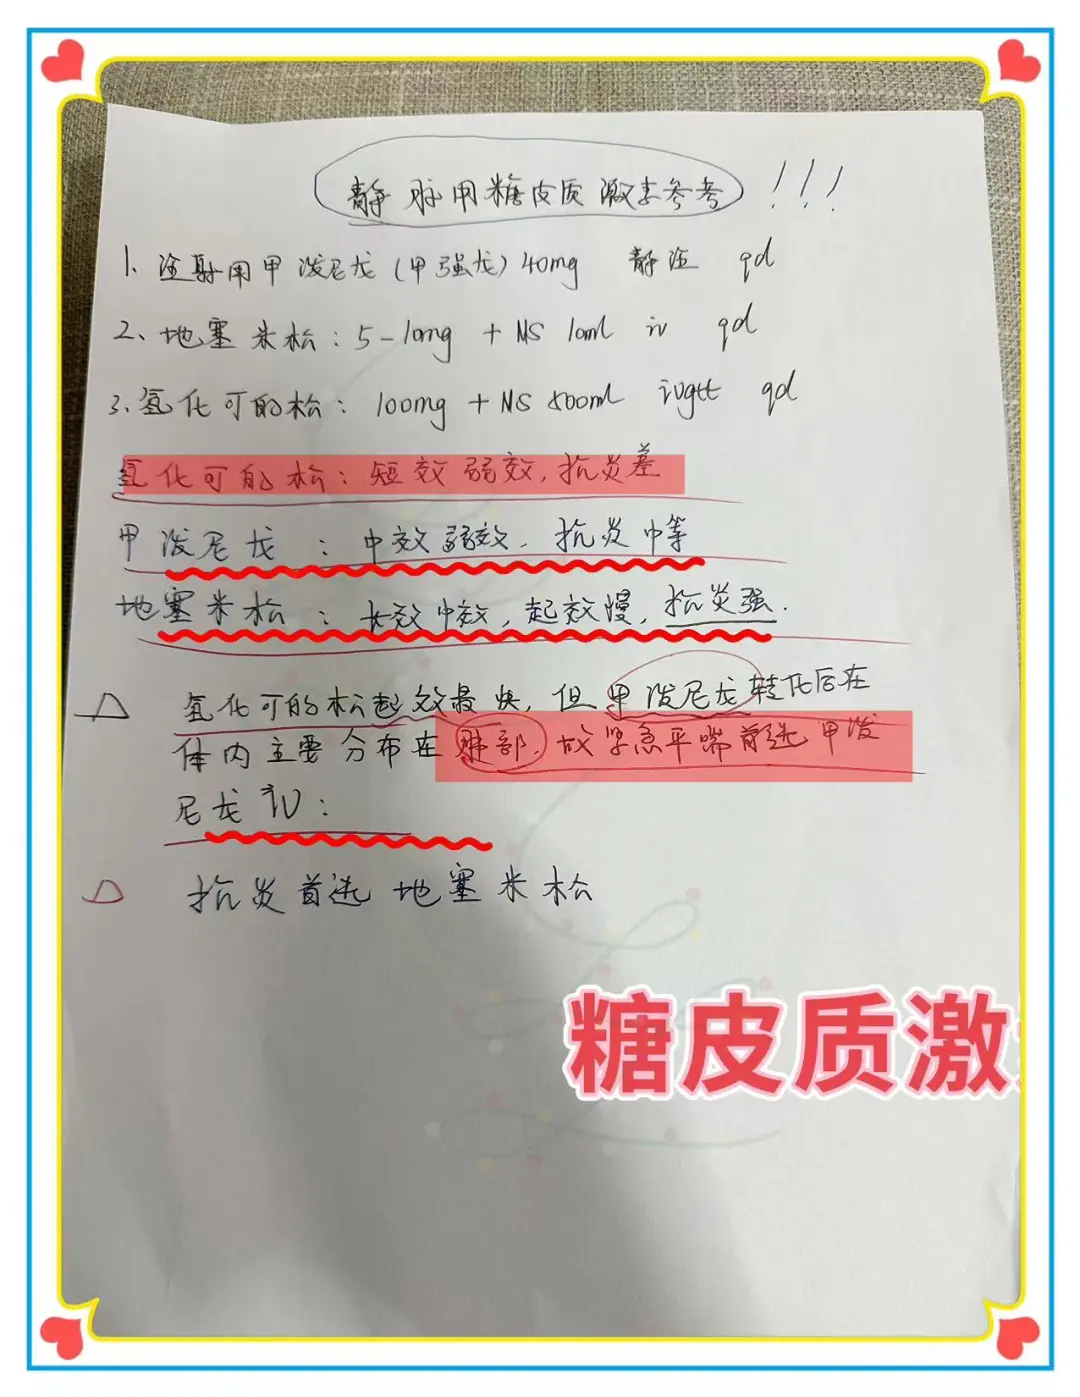 静脉用糖皮质激素参考 !!!
1. 注射用甲泼尼龙(甲强龙)40mg 静注 qd
2、地塞米松:5-10mg + NS 10ml iv qd
3.氢化可的松:100mg + NS 500ml ivgtt qd
氢化可的松:短效弱效,抗炎差
甲泼尼龙:中效弱效,抗炎中等
地塞米松:长效中效,起效慢,抗炎强.
△ 氢化可的松起效最快,但甲泼尼龙转化后在
体内主要分布在肺部,故紧急平喘首选甲泼
尼龙iv:
△ 抗炎首选地塞米松
糖皮质激